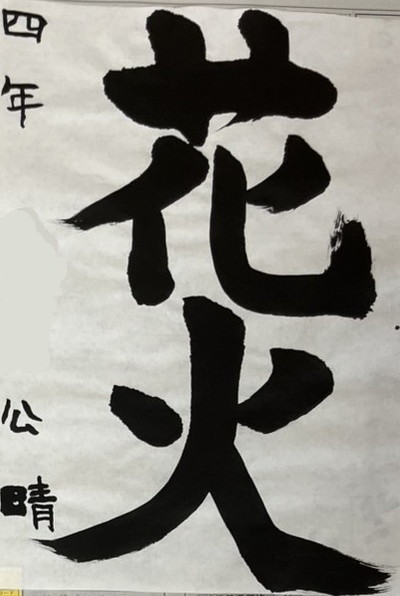 花火
四年 公晴